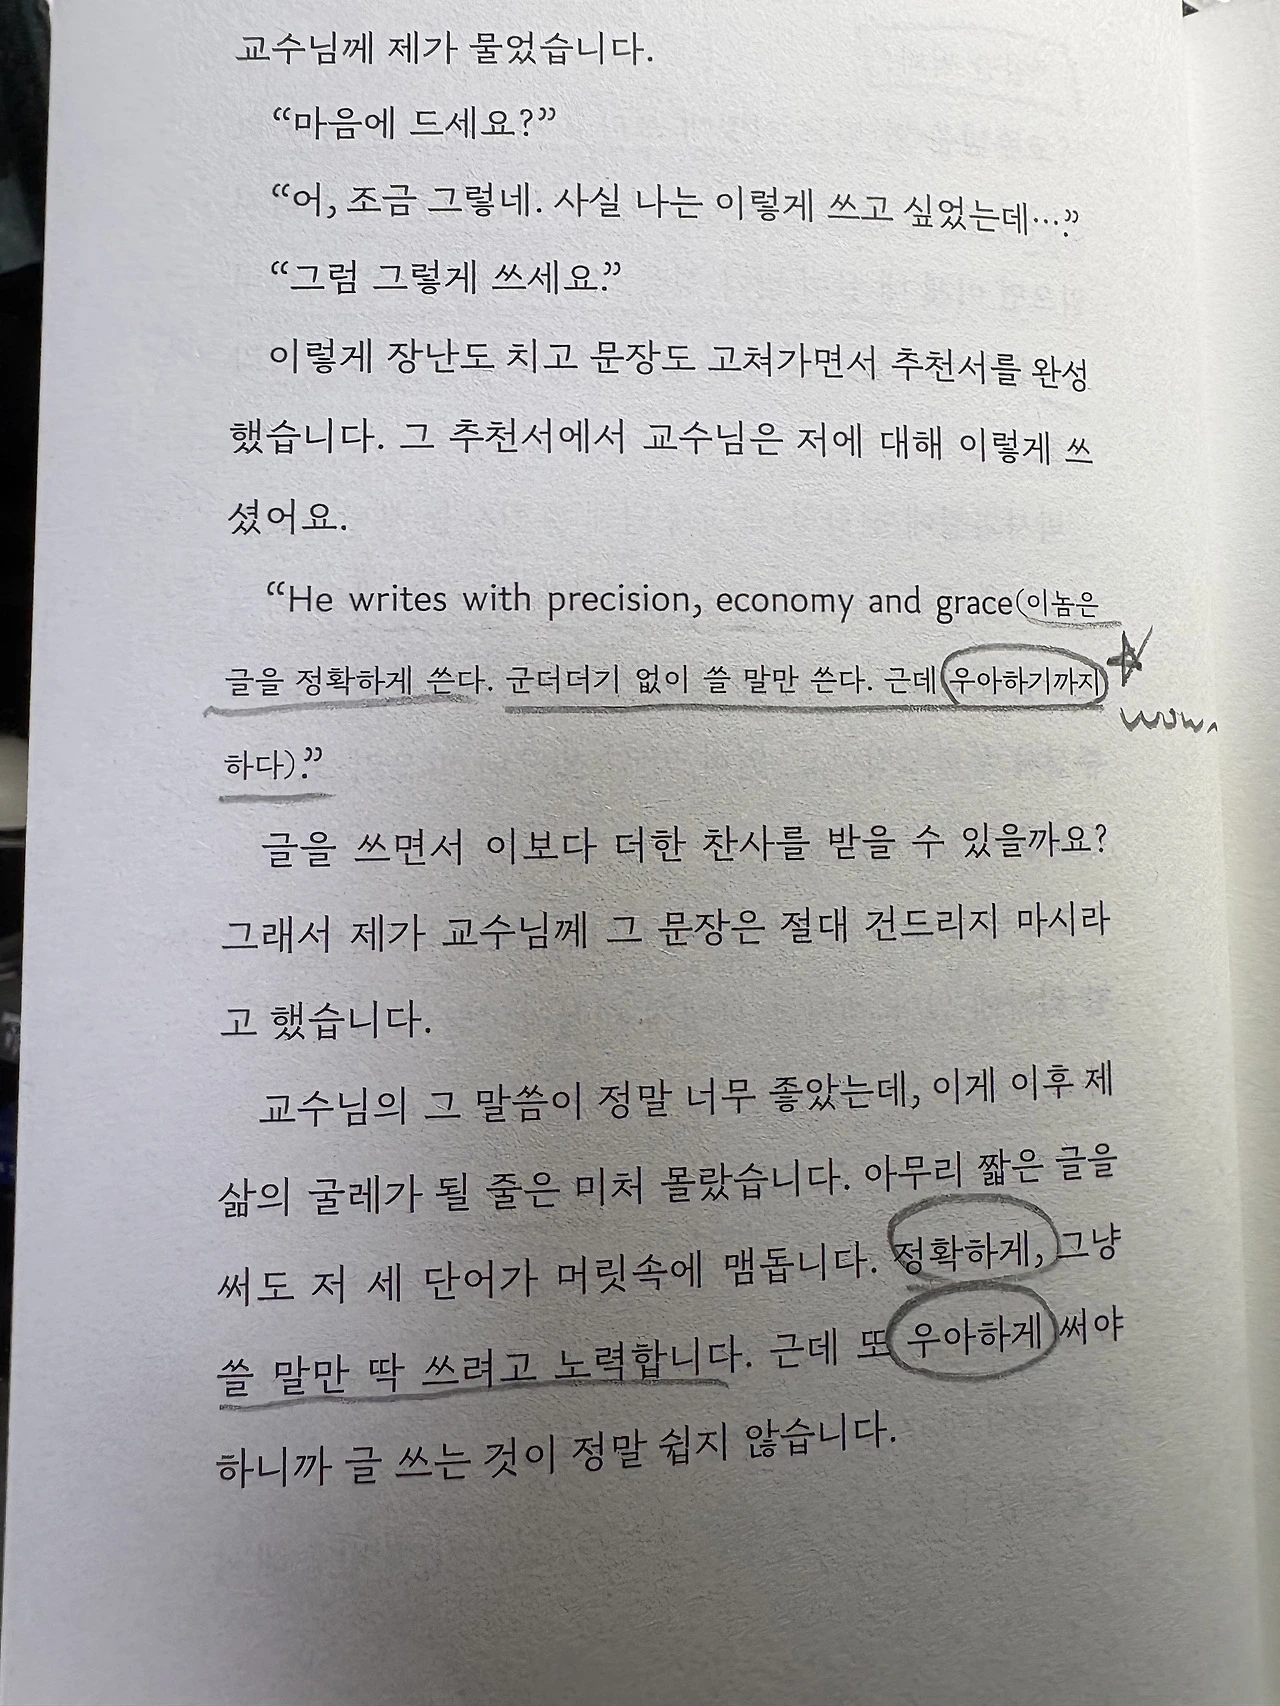 교수님께 제가 물었습니다.
“마음에 드세요?”
“어, 조금 그렇네. 사실 나는 이렇게 쓰고 싶었는데….”
“그럼 그렇게 쓰세요.”
이렇게 장난도 치고 문장도 고쳐가면서 추천서를 완성
했습니다. 그 추천서에서 교수님은 저에 대해 이렇게 쓰
셨어요.
“He writes with precision, economy and grace(이놈은
글을 정확하게 쓴다. 군더더기 없이 쓸 말만 쓴다. 근데 우아하기까지
wow.
하다).”
글을 쓰면서 이보다 더한 찬사를 받을 수 있을까요?
그래서 제가 교수님께 그 문장은 절대 건드리지 마시라
고 했습니다.
교수님의 그 말씀이 정말 너무 좋았는데, 이게 이후 제
삶의 굴레가 될 줄은 미처 몰랐습니다. 아무리 짧은 글을
써도 저 세 단어가 머릿속에 맴돕니다. 정확하게, 그냥
쓸 말만 딱 쓰려고 노력합니다. 근데 또 우아하게 써야
하니까 글 쓰는 것이 정말 쉽지 않습니다.